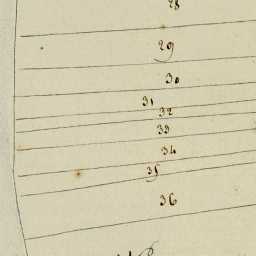 28
29
30
31
32
33
34
35
36